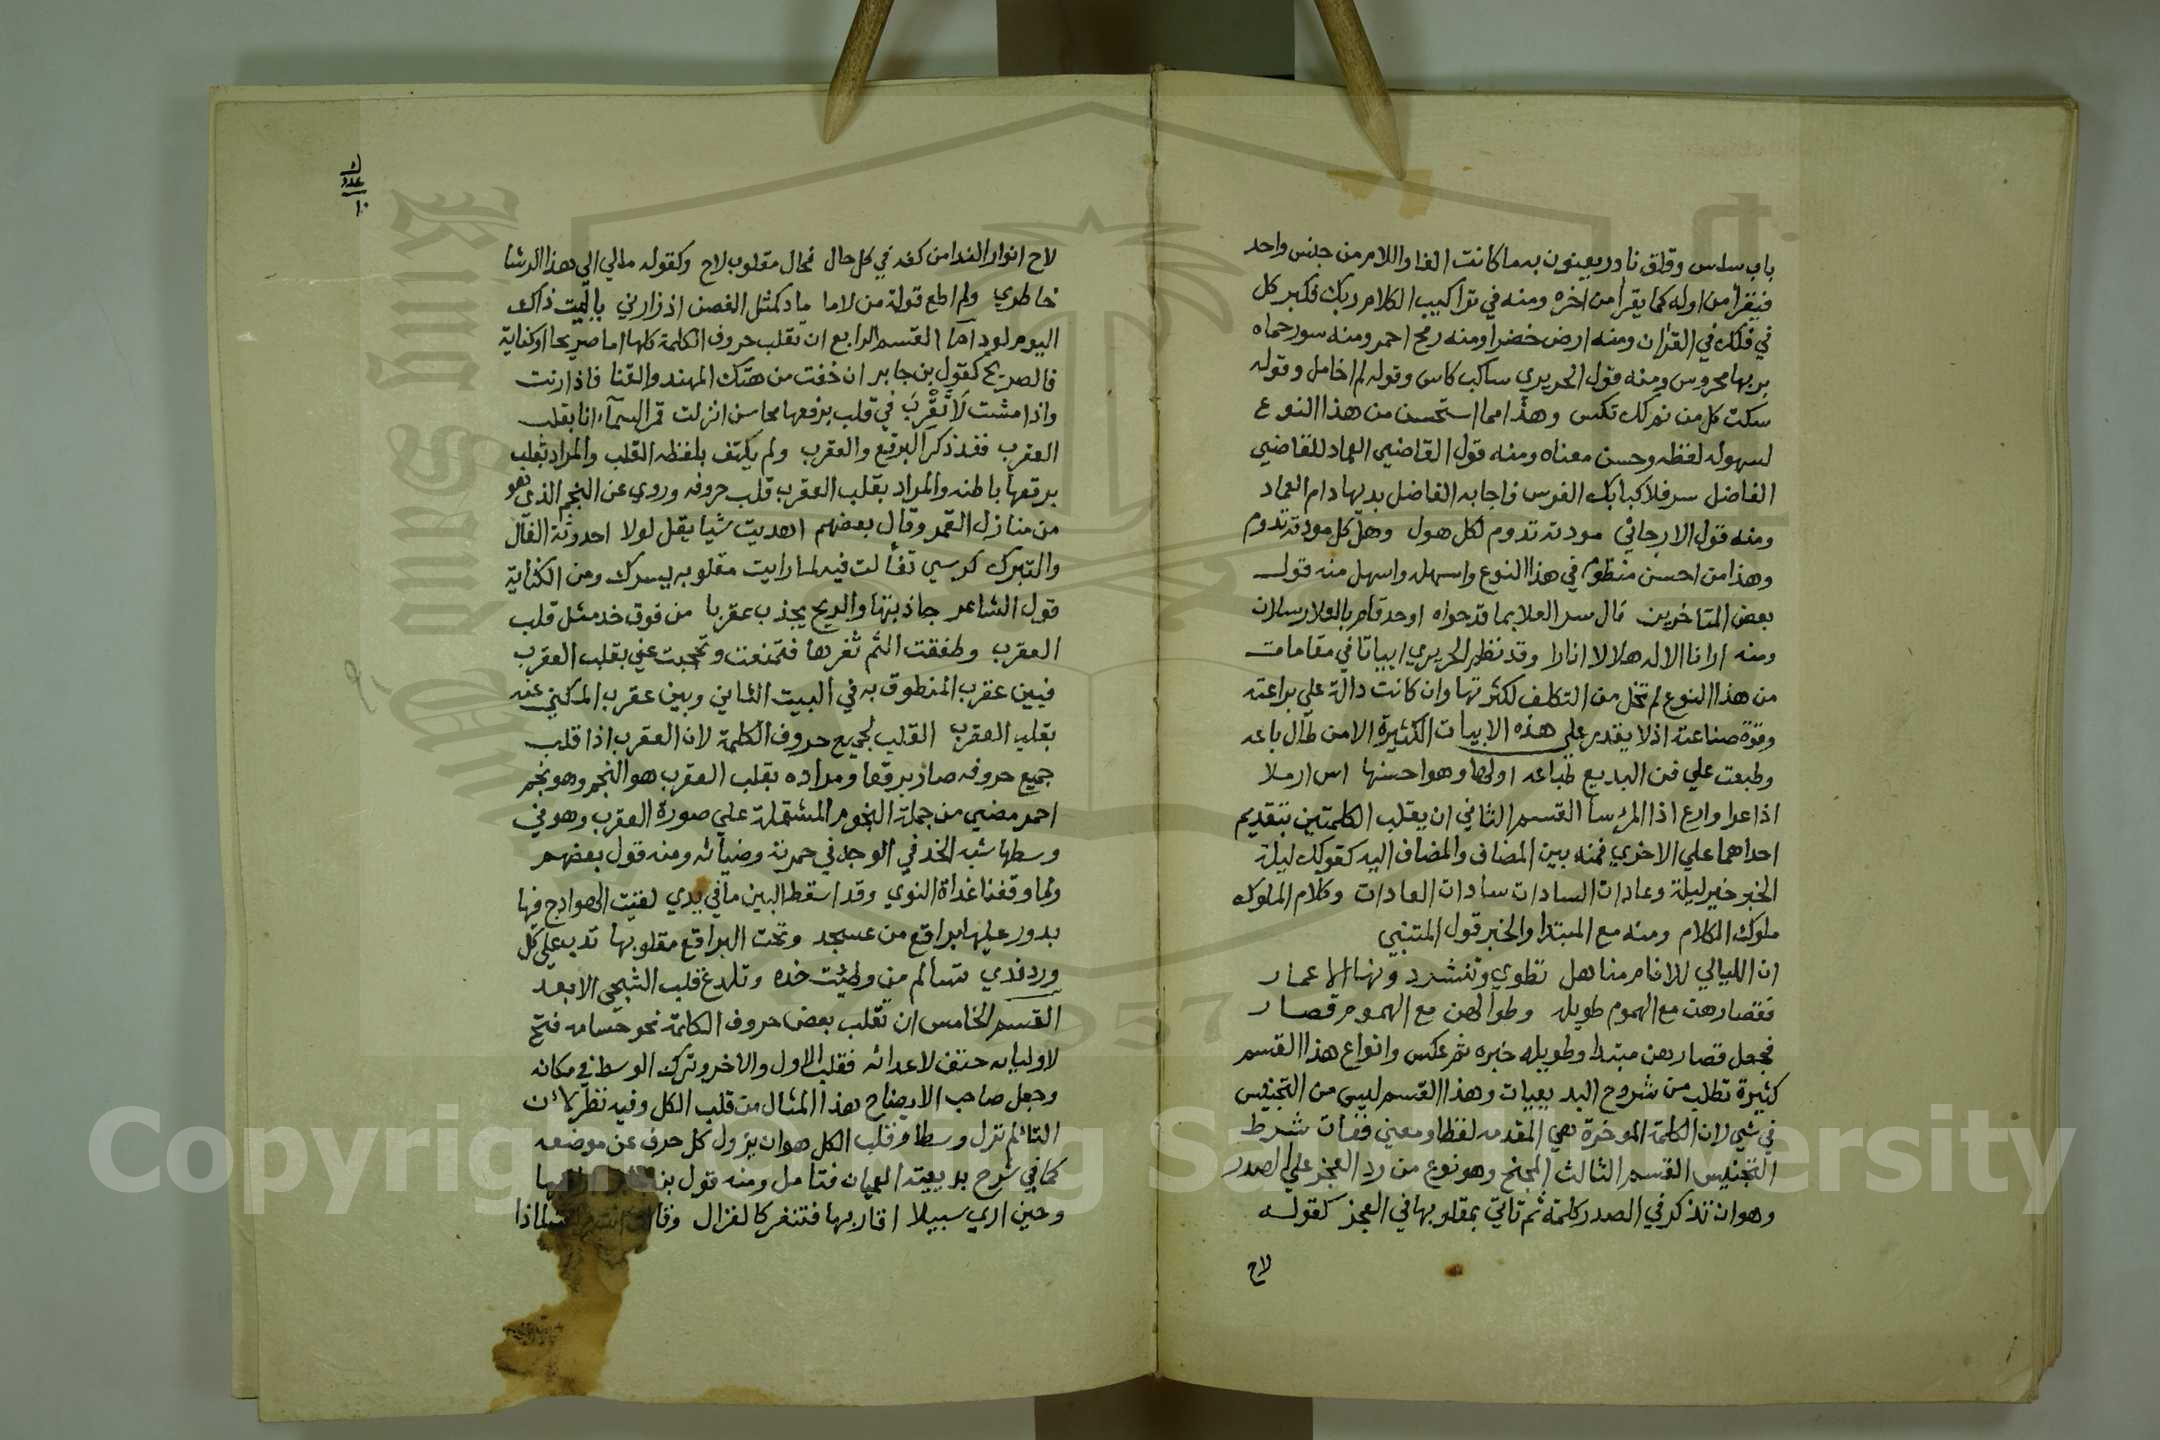 باب سلس وقلق نادر يعينون به ما كانت الفا واللام من جنس واحد
فيقرا من اوله كما يقرا من اخره ومنه في تراكيب الكلام ربك فكبر كل
في فلك في القران ومنه ارض خضرا ومنه رمح احمر ومنه سور حماه
بربها محروس ومنه قول الحريري ساكب كاس وقوله لم اخا مل وقوله
سكت كل من نم لك تكس وهذا مما استحسن من هذا النوع
لسهولة لفظه وحسن معناه ومنه قول القاضي العماد للقاضي
الفاضل سر فلا كبا بك الفرس فاجابه الفاضل بديها دام العماد
ومنه قول الارجاني مودته تدوم لكل هول وهل كل مودته تدوم
وهذا من احسن منظوم في هذا النوع واسهله واسهل منه قول
بعض المتاخرين قال سر العلا بما قد حواه اوحد قام بالعلا رسلان
ومنه ارانا الاله هلالا انارا وقد نظم الحريري ابياتا في مقامات
من هذا النوع لم تخل من التكلف لكثرتها وان كانت دالة علي براعته
وقوة صناعته اذ لا يقدر علي هذه الابيات الكثيرة الا من طال باعه
وطبعت علي فن البديع طباعه اولها وهو احسنها اس ارملا
اذا عرا وارع اذا المرء سا القسم الثاني ان يقلب الكلمتين بتقديم
احداهما علي الاخري فمنه بين المضاف والمضاف اليه كقولك ليلة
الخبر خير ليلة وعادات السادات سادات العادات وكلام الملوك
ملوك الكلام ومنه مع المبتدا والخبر قول المتنبي
ان الليالي للانام مناهل تطوي وتنشر دونها الاعمار
فقصارهن مع الهموم طويله وطوالهن مع الهموم قصار
فجعل قصارهن مبتدا وطويله خبره ثم عكس وانواع هذا القسم
كثيرة تطلب من شروح البديعيات وهذا القسم ليس من التجنيس
في شي لان الكلمة الموخرة هي المقدمه لفظا ومعني ففات شرط
التجنيس القسم الثالث المجنح وهو نوع من رد العجز علي الصدر
وهو ان تذكر في الصدر كلمة ثم تاتي بمقلوبها في العجز كقوله
لاح
لاح انوار الندا من كفه في كل حال فحال مقلوب لاح وكقوله مالي الي هذا الرشا
خاطري ولم اطع قولة من لاما ماد كمثل الغصن اذ زارني ياليت ذاك
اليوم لو داما القسم الرابع ان تقلب حروف الكلمة كلها اما صريحا او كناية
فالصريح كقول بن جابر ان خفت من هتك المهند والقنا فاذا رنت
واذا مشت لا تقرب في قلب برقعها محاسن انزلت قمر السماء انا بقلب
العقرب فقد ذكر البرقع والعقرب ولم يكتف بلفظه القلب والمراد بقلب
برقعها باطنه والمراد بقلب العقرب قلب حروفه وروي عن النجم الذي هو
من منازل القمر وقال بعضهم اهديت شيا يقل لولا احدوثة الفال
والتبرك كرسي تفألت فيه لما رايت مقلوبه يسرك ومن الكناية
قول الشاعر جاذبتها والريح يجذب عقربا من فوق خد مثل قلب
العقرب وطفقت الثم ثغرها فتمنعت وتحجبت عني بقلب العقرب
فبين عقرب المنطوق به في البيت الثاني وبين عقرب المكني عنه
بقلب العقرب القلب لجميع حروف الكلمة لان العقرب اذا قلب
جميع حروفه صار برقعا ومراده بقلب العقرب هو النجم وهو نجم
احمر مضي من جملة النجوم المشتملة علي صورة العقرب وهو في
وسطها شبه الخد في الوجه في حمرته وضيائه ومنه قول بعضهم
ولما وقفنا غداة النوي وقد اسقط البين ما في يدي لقيت الهوادج فيها
بدور عليها براقع من عسجد وتحت البراقع مقلوبها تدب علي كل
ورد ندي تسالم من وطيت خده وتلدغ قلب الشجي الابعد
القسم الخامس ان تقلب بعض حروف الكلمة نحو حسامه فتح
لاوليائه حتف لاعدائه فقلب الاول والاخر وترك الوسط في مكانه
وجعل صاحب الايضاح هذا المثال من قلب الكل وفيه نظر لان
التا لم تزل وسطا وقلب الكل هو ان يزول كل حرف عن موضعه
كما في شرح بديعية العميان فتامل ومنه قول
وحين اري سبيلا اقاربها فتنفر كالغزال لماذا